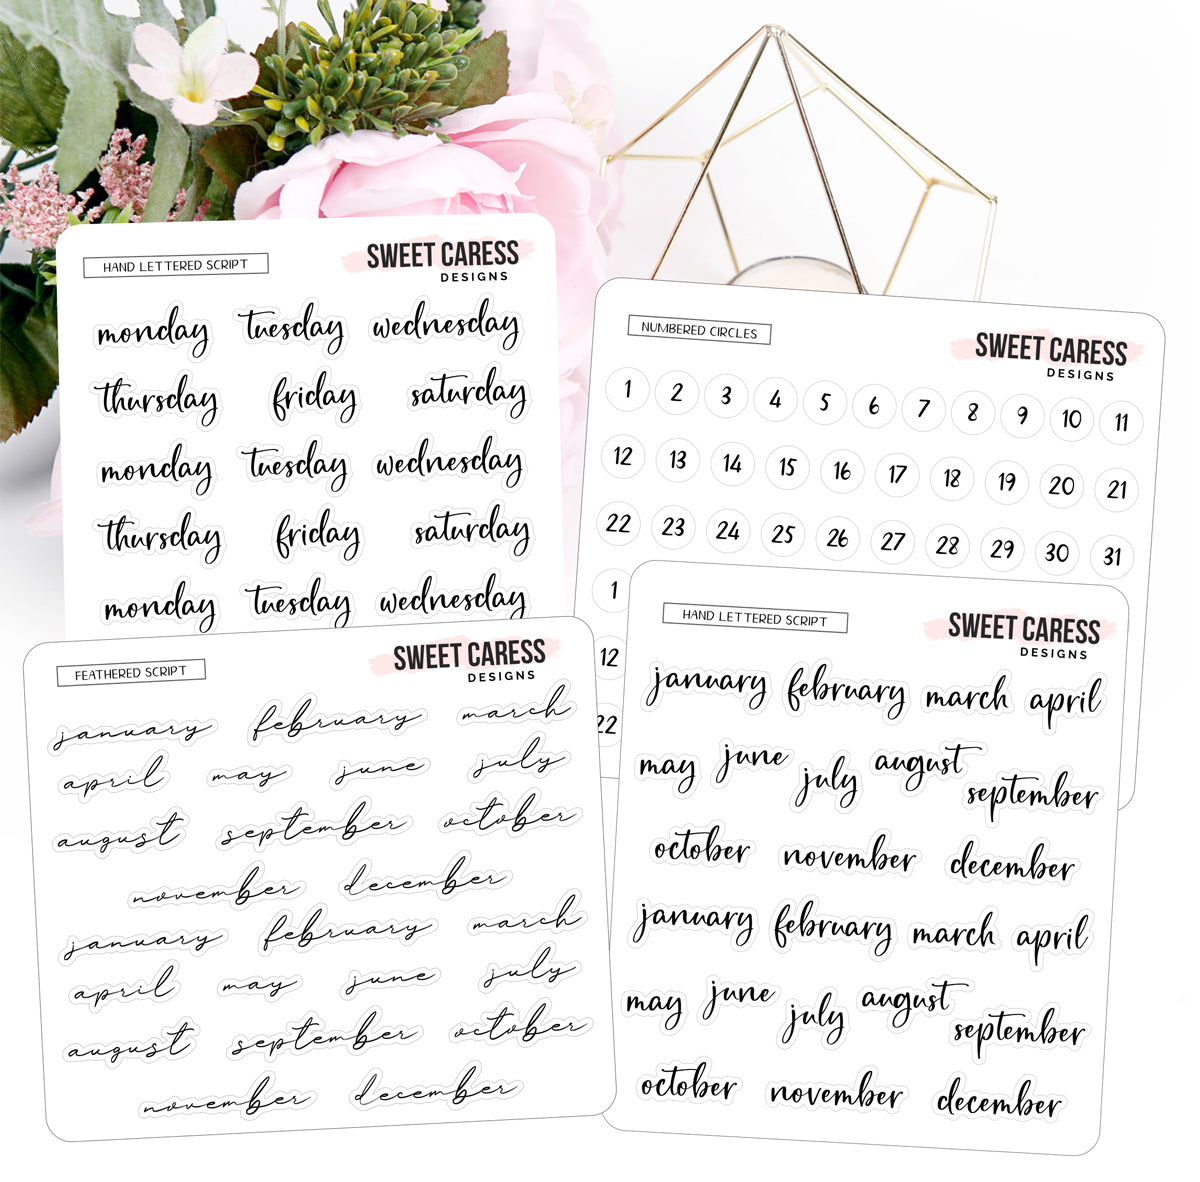 HAND LETTERED SCRIPT
SWEET CARESS
DESIGNS
monday tuesday wednesday
thursday friday saturday
monday tuesday wednesday
thursday friday saturday
monday tuesday wednesday
NUMBERED CIRCLES
SWEET CARESS
DESIGNS
1 2 3 4 5 6 7 8 9 10 11
12 13 14 15 16 17 18 19 20 21
22 23 24 25 26 27 28 29 30 31
1
12
22
FEATHERED SCRIPT
SWEET CARESS
DESIGNS
january february march
april may june july
august september october
november december
january february march
april may june july
august september october
november december
HAND LETTERED SCRIPT
SWEET CARESS
DESIGNS
january february march april
may june july august september
october november december
january february march april
may june july august september
october november december